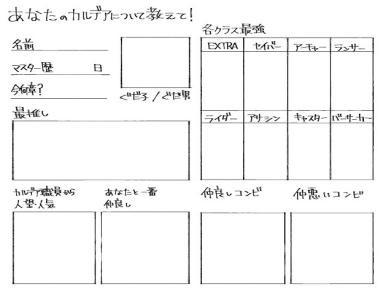 あなたのカルデアについて教えて!
名前
マスター歴 日
今何章?
ぐだ子/ぐだ男
最推し
各クラス最強
EXTRA セイバー アーチャー ランサー
ライダー アサシン キャスター バーサーカー
カルデア職員から
人望・人気
あなたと一番
仲良し
仲良しコンビ
仲悪いコンビ